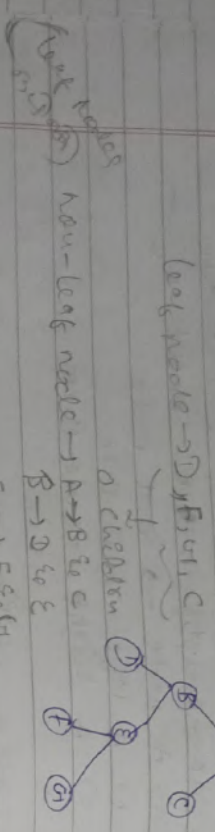 leaf node → D, F, G, C
0 children
(leaf nodes
non-leaf node → A → B & C
B → D & E
B
C
D
E
F
G